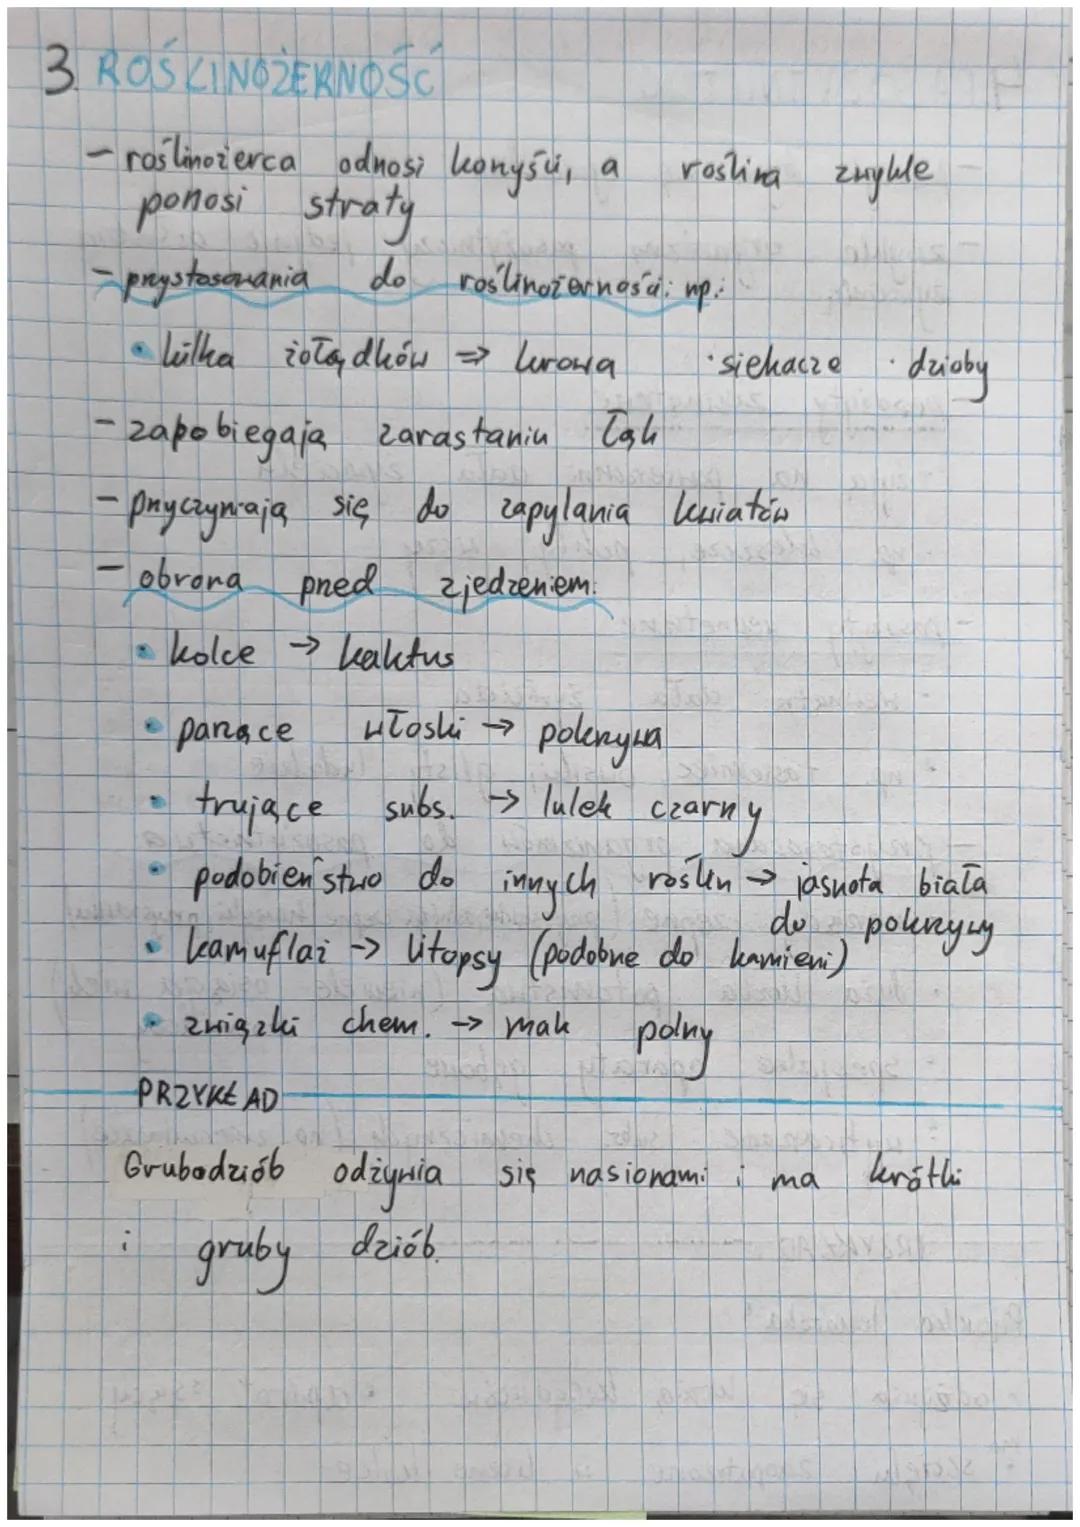 3. ROŚLINOŻERNOŚĆ
- roślinożerca odnosi korzyści, a roślina zwykle
ponosi straty
- przystosowania do roślinożerności: np.:
• kilka żołądków => krowa · siekacze · dzioby
- zapobiegają zarastaniu łąk
- przyczyniają się do zapylania kwiatów
- obrona przed zjedzeniem:
• kolce → kaktus
• parzące włoski → pokrzywa
• trujące subs. → lulek czarny
• podobieństwo do innych roślin → jasnota biała
do pokrzywy
• kamuflaż → litopsy (podobne do kamieni)
• związki chem. → mak polny
PRZYKŁAD
Grubodziób odżywia się nasionami i ma krótki
i gruby dziób.